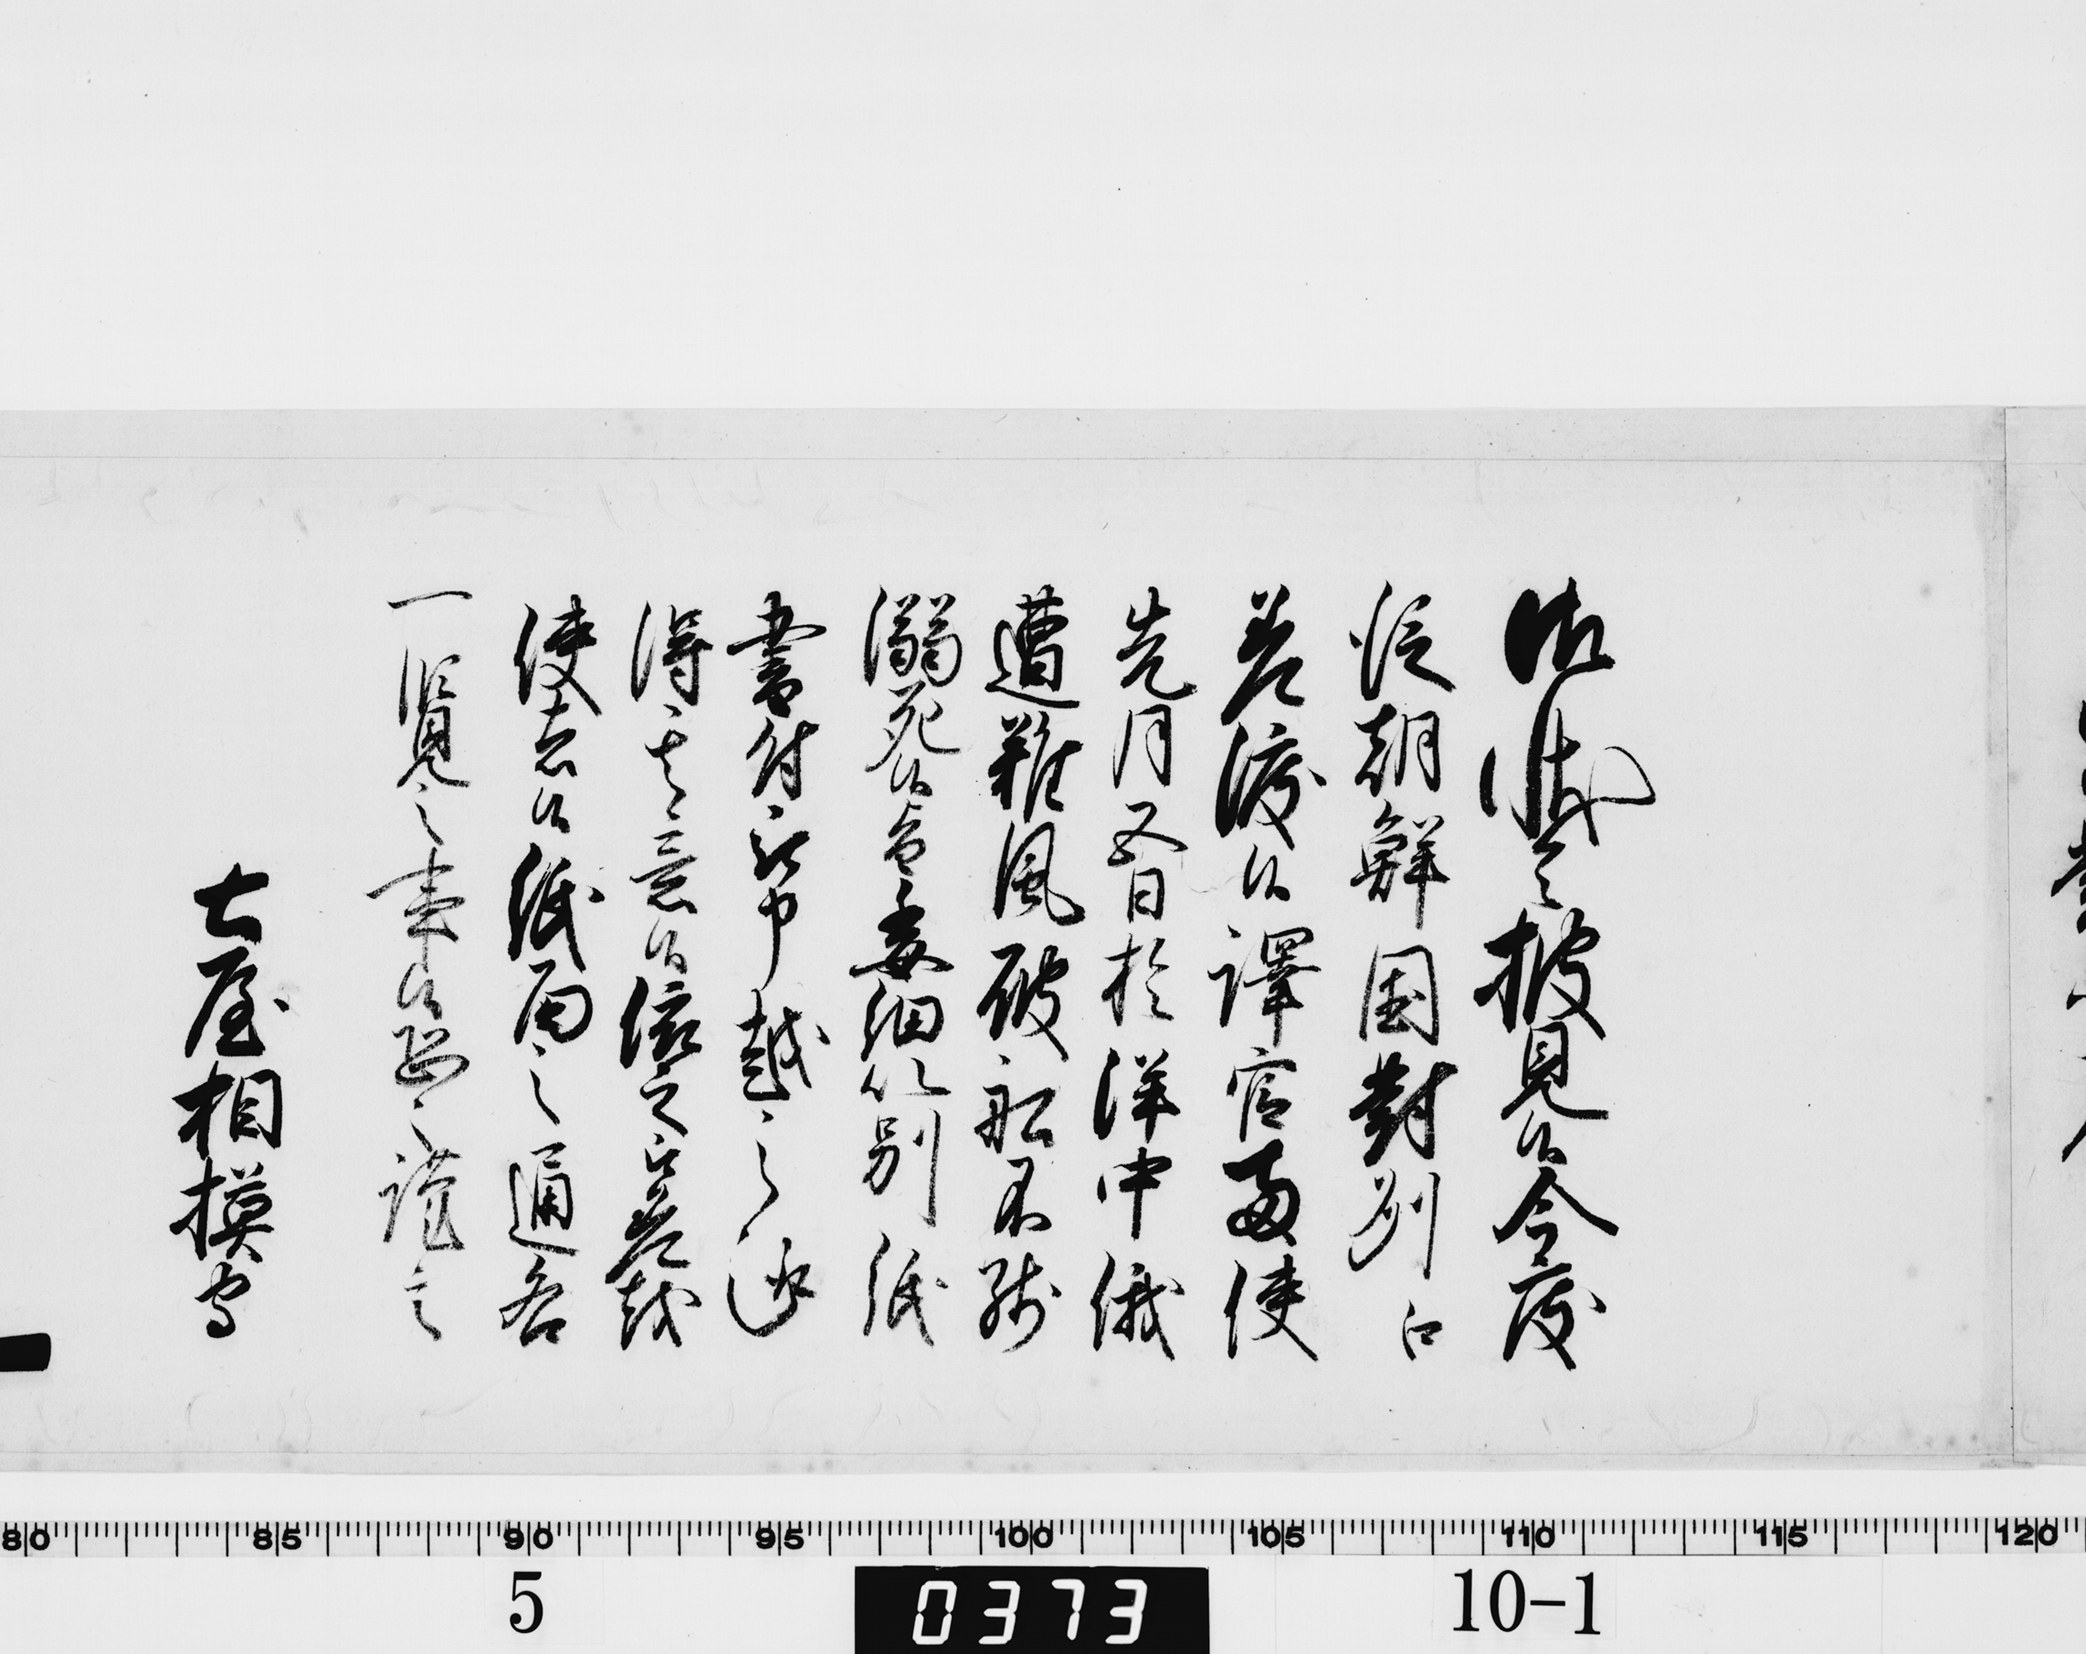 御状令披見候今度
従朝鮮国對州江
差渡候譯官両使
先月五日於洋中俄
遭難風破船不残
溺死候旨委細以別紙
書付被申越之趣
得其意候依之以差越
使者候紙面之通各
一覧之事候恐々謹言
土屋相模守
80 85 90 95 100 105 110 115 120
5
0373
10-1